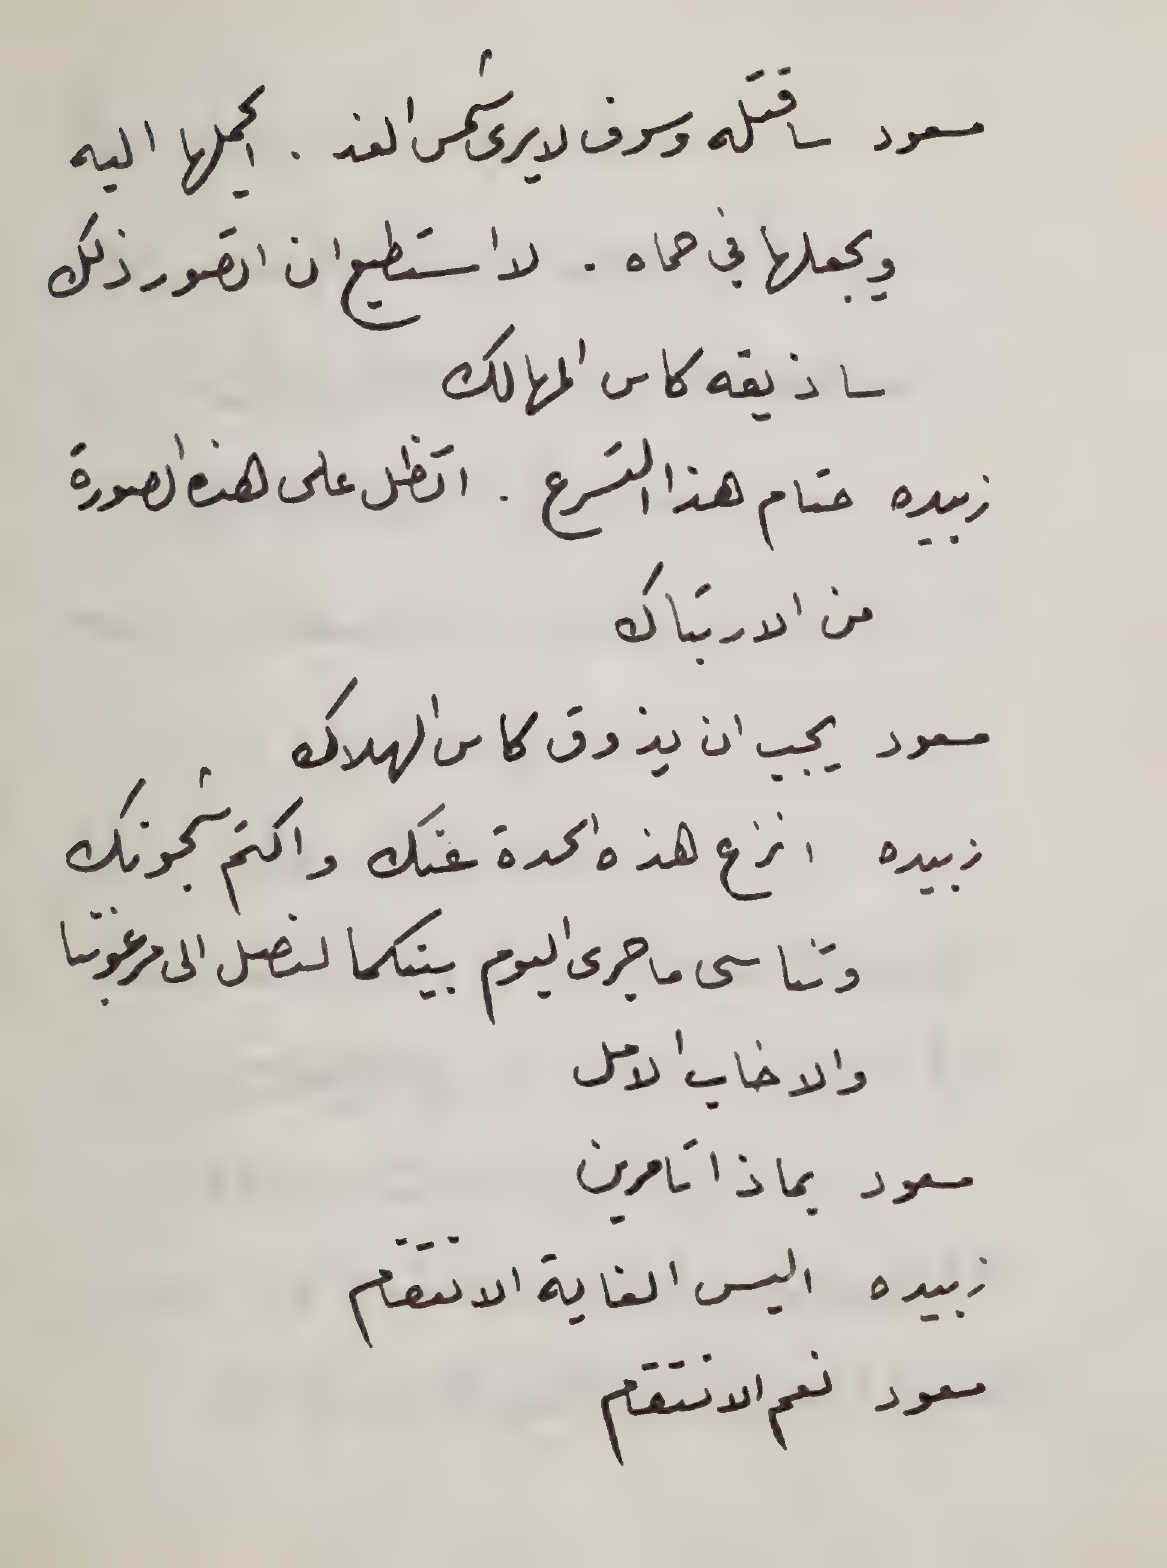 مسعود ساقتله وسوف لايرى شمس الغد . ايحملها اليه
ويجعلها في حماه . لا استطيع ان اتصور ذلك
ساذيقه كاس المهالك
زبيده حتام هذا التسرع . اتظل على هذه الصورة
من الارتباك
مسعود يجب ان يذوق كاس الهلاك
زبيده انزع هذه الحدة عنك واكتم شجونك
وتناسى ماجرى اليوم بينكما لنصل الى مرغوبنا
والا خاب الامل
مسعود بماذا تامرين
زبيده اليس الغاية الانتقام
مسعود نعم الانتقام